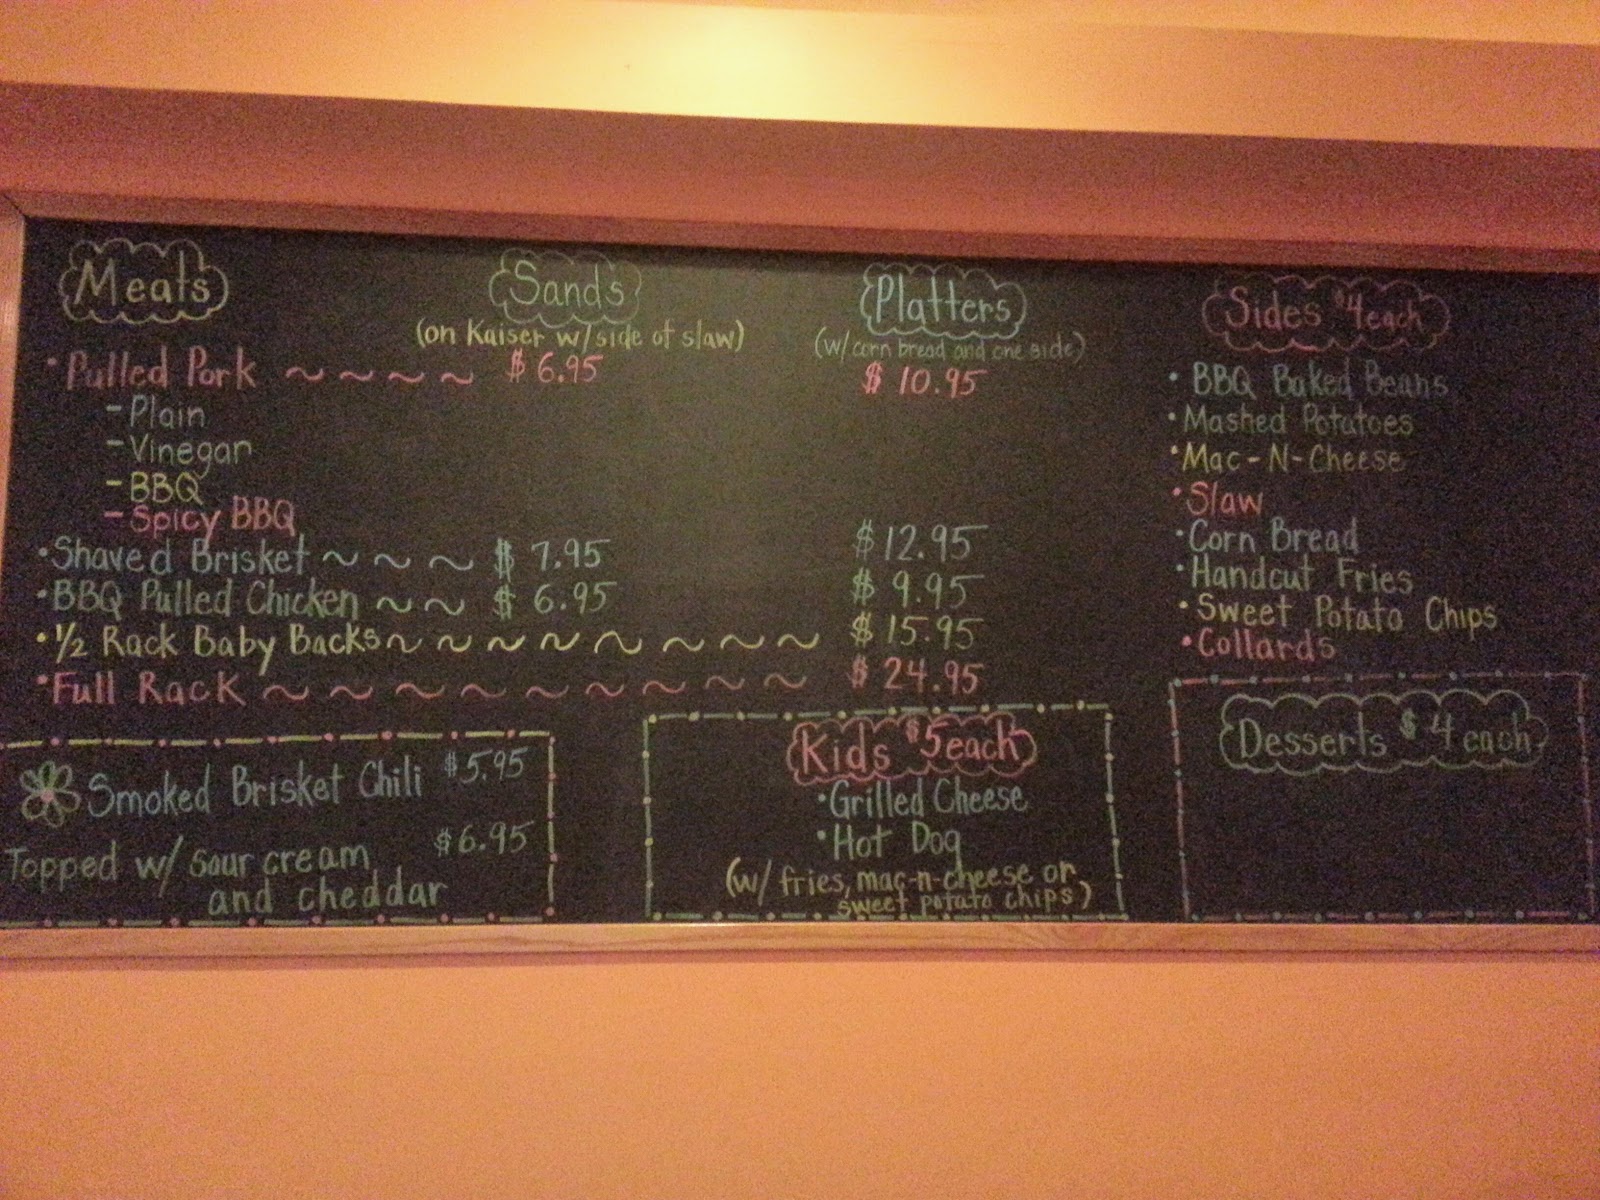 Meats
Sands
(on Kaiser w/side of slaw)
Platters
(w/corn bread and one side)
Sides $4 each
• Pulled Pork ~ ~ ~ ~ $ 6.95 $ 10.95
- Plain
- Vinegar
- BBQ
- Spicy BBQ
• Shaved Brisket ~ ~ ~ $ 7.95 $ 12.95
• BBQ Pulled Chicken ~ ~ $ 6.95 $ 9.95
• 1/2 Rack Baby Backs ~ ~ ~ ~ ~ ~ ~ ~ ~ $ 15.95
• Full Rack ~ ~ ~ ~ ~ ~ ~ ~ ~ $ 24.95
• BBQ Baked Beans
• Mashed Potatoes
• Mac-N-Cheese
• Slaw
• Corn Bread
• Handcut Fries
• Sweet Potato Chips
• Collards
Smoked Brisket Chili $5.95
Topped w/ sour cream $6.95
and cheddar
Kids $5 each
• Grilled Cheese
• Hot Dog
(w/ fries, mac-n-cheese or
sweet potato chips)
Desserts $4 each